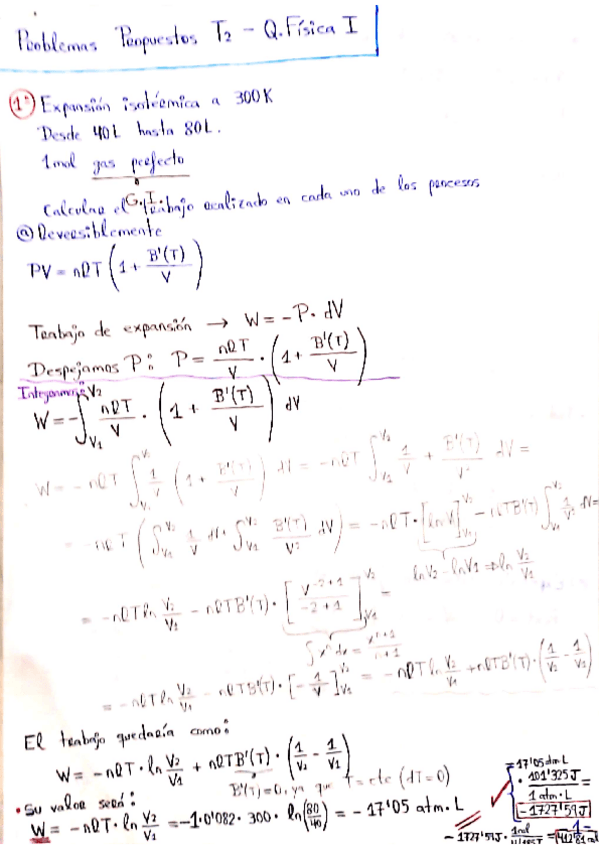 Problemas Propuestos T2 - Q.Física I
1º Expansión isotérmica a 300K
Desde 40L hasta 80L.
1mol gas perfecto
G.I.
Calcular el trabajo realizado en cada uno de los procesos
a Reversiblemente
PV = nRT (1 + B'(T)/V)
Trabajo de expansión → W = -P · dV
Despejamos P: P = nRT/V · (1 + B'(T)/V)
Integramos:
W = -∫V1V2 nRT/V · (1 + B'(T)/V) dV
W = - nRT ∫V1V2 1/V (1 + B'(T)/V) dV = - nRT ∫V1V2 1/V + B'(T)/V² dV =
= -nRT (∫V1V2 1/V dV · ∫V1V2 B'(T)/V² dV) = -nRT · [lnV]V1V2 - nRTB'(T) ∫V1V2 1/V² dV =
lnV2 - lnV1 ⇒ ln V2/V1
= -nRT ln V2/V1 - nRTB'(T) · [V^-2+1/-2+1]V1V2 =
∫x^n dx = x^n+1/n+1
= -nRT ln V2/V1 - nRTB'(T) · [-1/V]V1V2 = -nRT ln V2/V1 + nRTB'(T) · (1/V2 - 1/V1)
El trabajo quedaría como:
W = -nRT · ln V2/V1 + nRTB'(T) · (1/V2 - 1/V1)
B'(T)=0, ya que T = cte (dT=0)
• Su valor será:
W = -nRT · ln V2/V1 = -1·0'082 · 300 · ln(80/40) = -17'05 atm·L
= -17'05 atm·L
· 101'325J/1 atm·L =
-1727'59J
- 1727'59J · 1cal